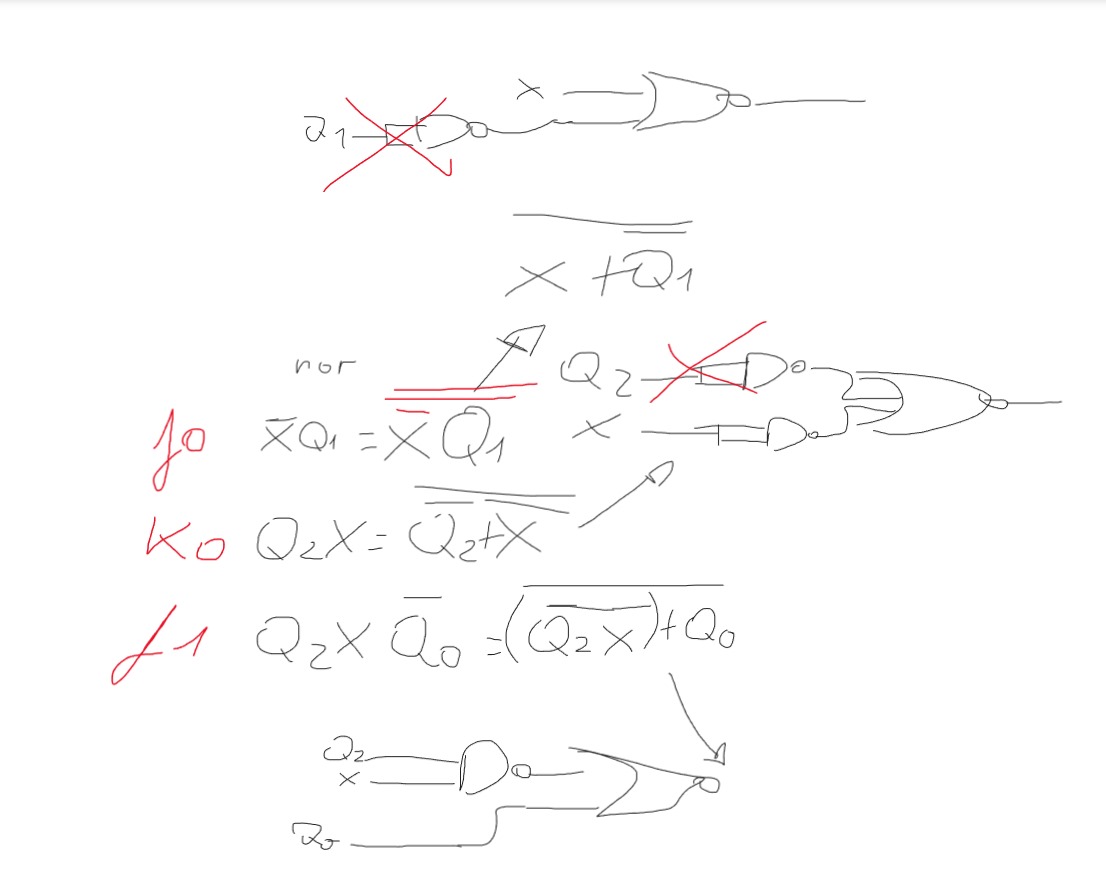 X
Q1
X + Q̿1
nor
Q2
J0 X̄Q1 = X̄ Q1
X
K0 Q2X = Q̄2+X̄
J1 Q2X Q̄0 = (Q2X)+Q0
Q2
X
Q0